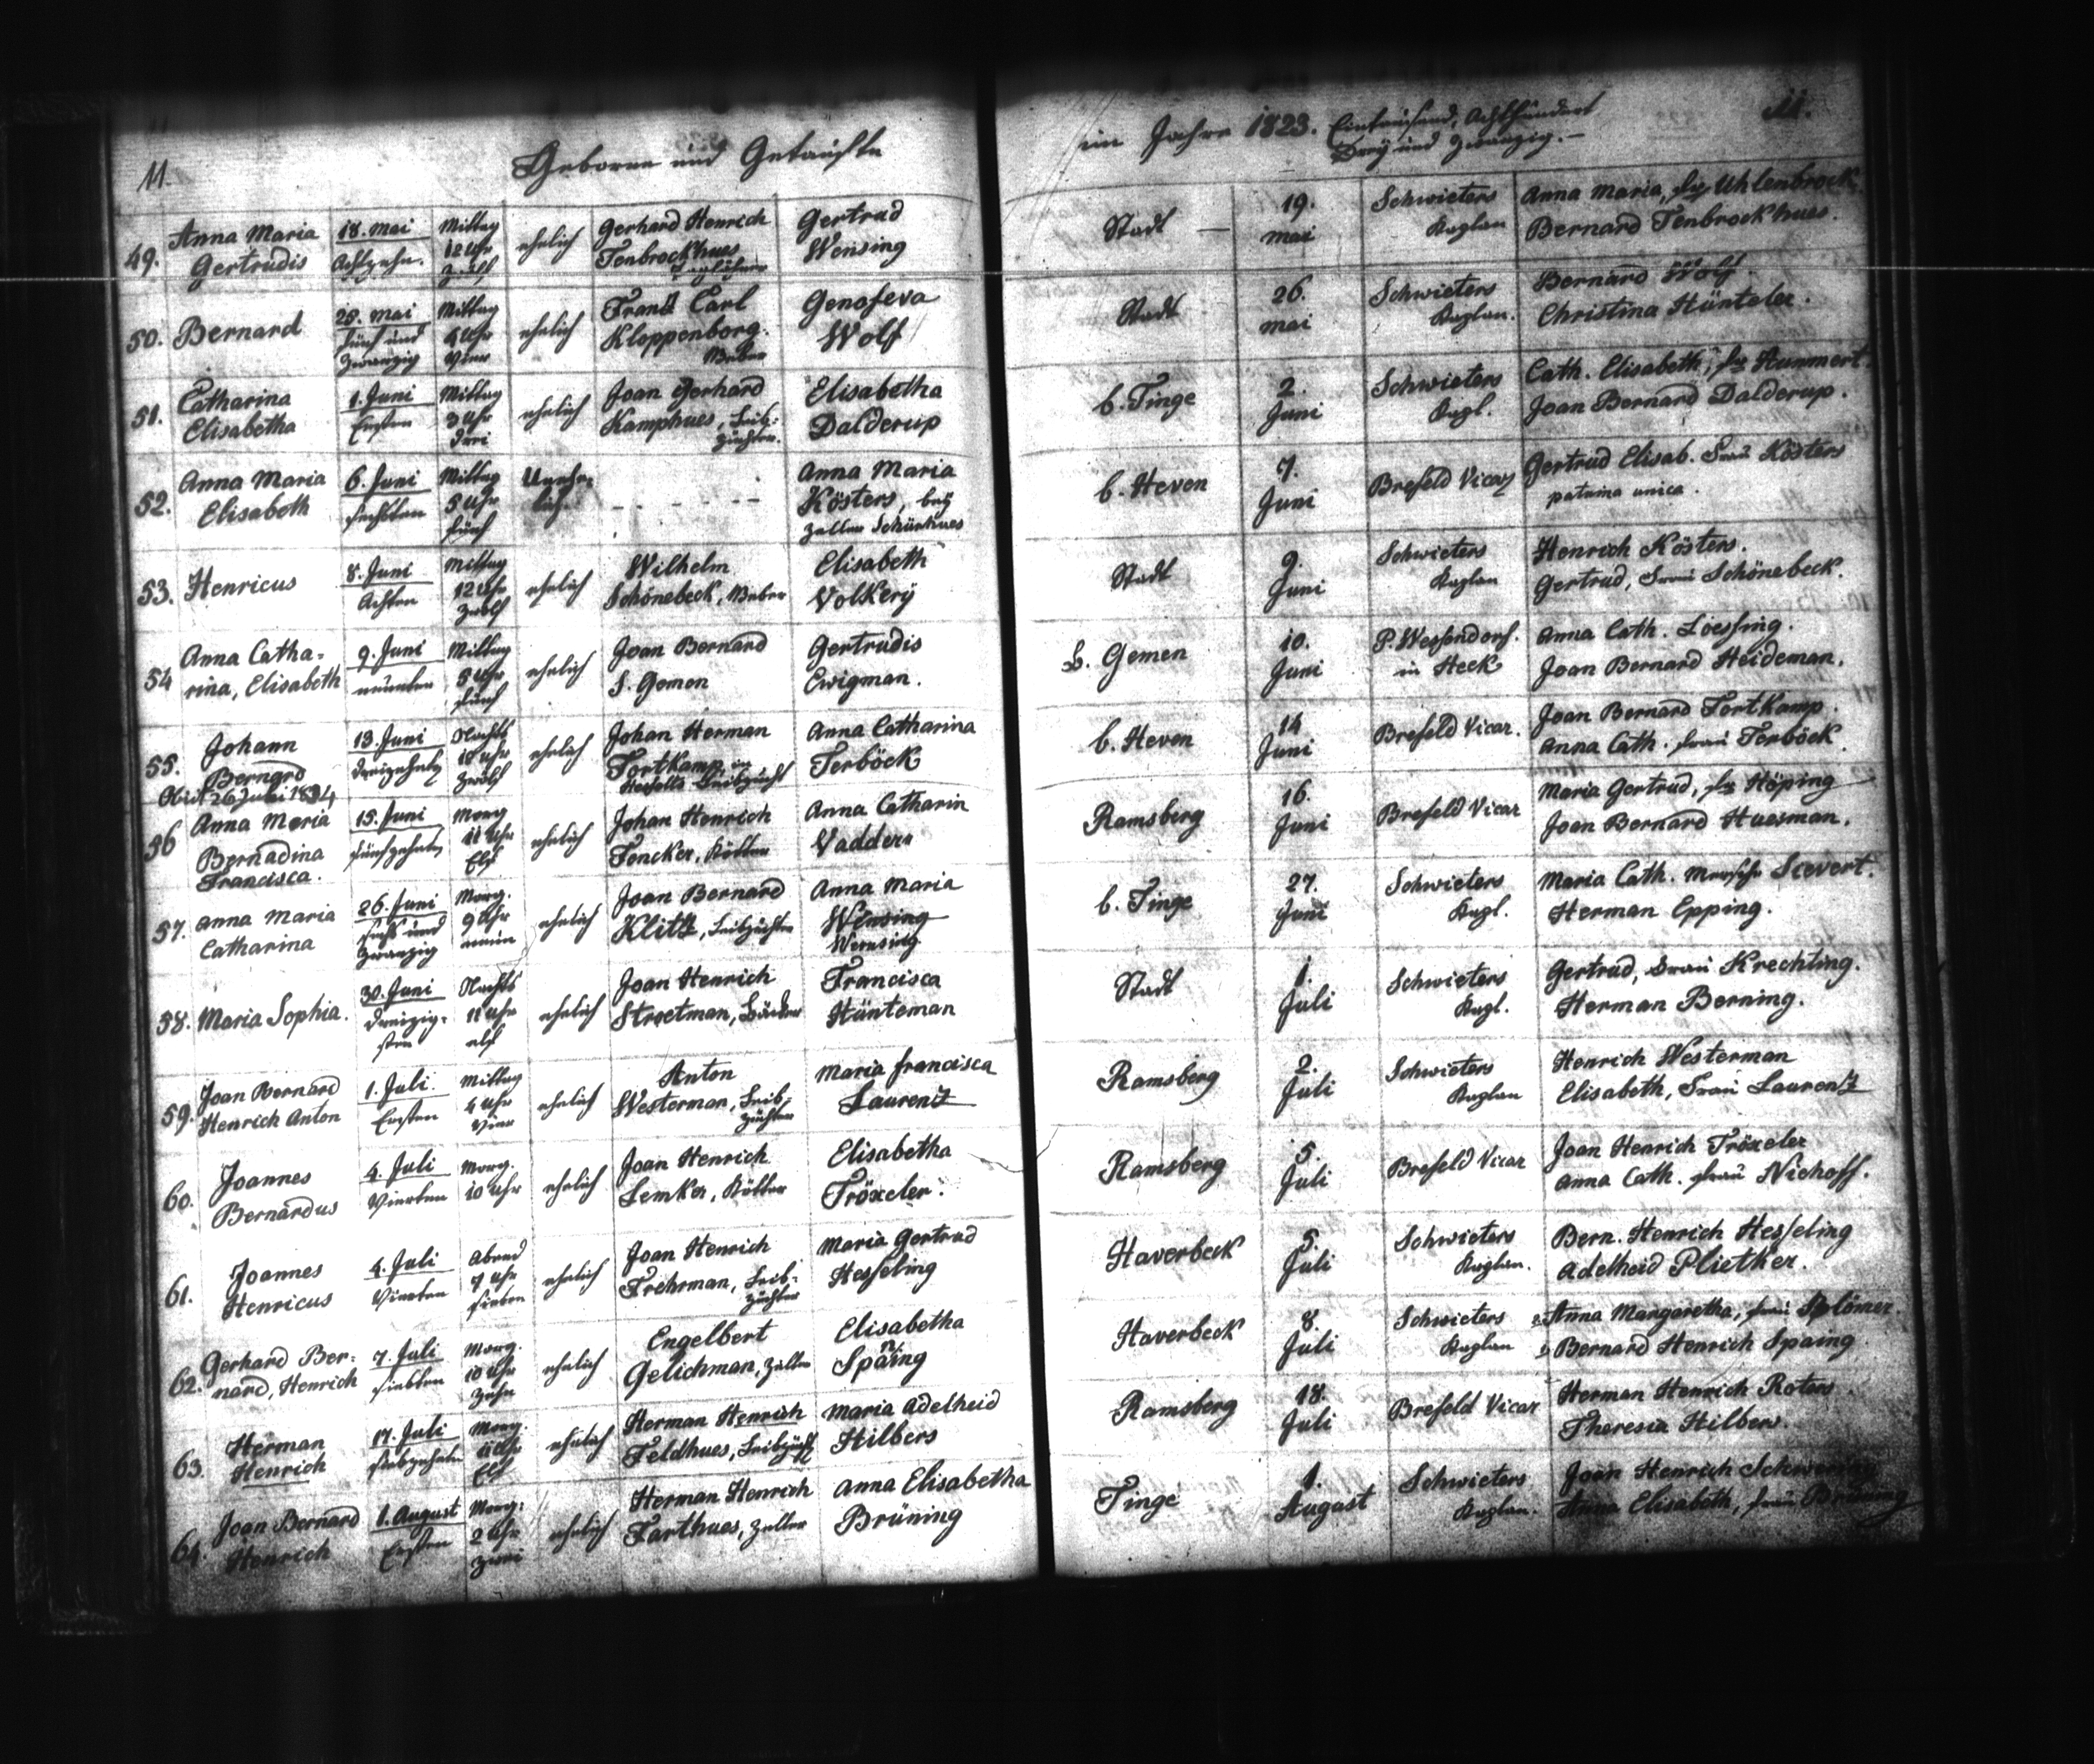 11.
Geborne und Getaufte
49.
Anna Maria
Gertrudis
18. Mai
Achtzehn.
Mittag
12 Uhr
zwölf
ehelich
Gerhard Henrich
Tenbrockhues
Taglöhner
Gertrud
Wensing
50.
Bernard
25. Mai
fünf und
zwanzig
Mittag
4 Uhr
Vier
ehelich
Carl
Kloppenborg.
Weber
Genofeva
Wolf
51.
Catharina
Elisabetha
1. Juni
Ersten
Mittag
3 Uhr
drei
ehelich
Joan Gerhard
Kamphues, Leib-
züchter.
Elisabetha
Dalderup
52.
Anna Maria
Elisabeth
6. Juni
sechsten
Mittag
5 Uhr
fünf
Unehe-
lich.
Anna Maria
Kösters, bey
Zeller Schürhues
53.
Henricus
8. Juni
Achten
Mittag
12 Uhr
zwölf
ehelich
Wilhelm
Schönebeck, Weber
Elisabeth
Volkery
54
Anna Catha-
rina, Elisabeth
9. Juni
neunten
Mittag
5 Uhr
fünf
ehelich
Joan Bernard
S. Gemen
Gertrudis
Ewigman.
55.
Johann
Bernard
Obiit 26 Juli 1834
13. Juni
dreizehnte
Nachts
12 Uhr
zwölf
ehelich
Johan Herman
Fortkamp in
Leibzucht
Anna Catharina
Terböck
56
Anna Maria
Bernadina
Francisca.
15. Juni
fünfzehnte
Morg
11 Uhr
Elf
ehelich
Johan Henrich
Foncker, Kötter
Anna Catharin
Vadders
57.
Anna Maria
Catharina
26. Juni
sechs und
zwanzig
Morg.
9 Uhr
neun
ehelich
Joan Bernard
Klitz, Leibzüchter
Anna Maria
Wensing
Wensing
58.
Maria Sophia.
30. Juni
dreizig-
sten
Nachts
11 Uhr
elf
ehelich
Joan Henrich
Stroetman, Bäcker
Francisca
Hünteman
59.
Joan Bernard
Henrich Anton
1. Juli
Ersten
Mittag
4 Uhr
Vier
ehelich
Anton
Westerman, Leib-
züchter
Maria francisca
Laurenz
60.
Joannes
Bernardus
4. Juli
Vierten
Morg.
10 Uhr
ehelich
Joan Henrich
Lemker, Kötter
Elisabetha
Tröxeler.
61.
Joannes
Henricus
4. Juli
Vierten
Abend
7 Uhr
sieben
ehelich
Joan Henrich
Frehrman, Leib-
züchter
Maria Gertrud
Hesseling
62.
Gerhard Ber-
nard, Henrich
7. Juli
siebten
Morg.
10 Uhr
zehn
ehelich
Engelbert
Gelichman, Zeller
Elisabetha
Spaing
63.
Herman
Henrich
17. Juli
siebzehnte
Morg.
11 Uhr
Elf
ehelich
Herman Henrich
Feldhues, Leibzücht
Maria Adelheid
Hilbers
64.
Joan Bernard
Henrich
1. August
Ersten
Morg.
2 Uhr
zwei
ehelich
Herman Henrich
Farthues, Zeller
Anna Elisabetha
Brüning
im Jahre 1823. Eintausend, Achthundert
Drey und zwanzig. -
11.
Stadt
19.
Mai
Schwieters
Kaplan
Anna Maria, fr Uhlenbrock.
Bernard Tenbrockhues.
Stadt
26.
Mai
Schwieters
Kaplan.
Bernard Wolf.
Christina Hünteler.
b. Tinge
2.
Juni
Schwieters
Kapl.
Cath. Elisabeth, fr Hummert.
Joan Bernard Dalderup.
b. Heven
7.
Juni
Brefeld Vicar
Gertrud Elisab. Frau Kösters
patrina unica.
Stadt
9.
Juni
Schwieters
Kaplan
Henrich Kösters.
Gertrud, Frau Schönebeck.
b. Gemen
10.
Juni
P. Wessendorf.
in Heek
Anna Cath. Loessing.
Joan Bernard Heideman.
b. Heven
14
Juni
Brefeld Vicar.
Joan Bernard Fortkamp.
Anna Cath. frau Terböck
Ramsberg
16.
Juni
Brefeld Vicar
Maria Gertrud, fr Höping
Joan Bernard Huesman.
b. Tinge
27.
Juni
Schwieters
Kapl.
Maria Cath. Sievert.
Herman Epping.
Stadt
1.
Juli
Schwieters
Kapl.
Gertrud, Frau Krechting.
Herman Berning.
Ramsberg
2.
Juli
Schwieters
Kaplan
Henrich Westerman
Elisabeth, Frau Laurenz
Ramsberg
5.
Juli
Brefeld Vicar
Joan Henrich Tröxeler
Anna Cath. frau Niehoff.
Haverbeck
5.
Juli
Schwieters
Kaplan.
Bern. Henrich Hesseling
Adelheid Pliether.
Haverbeck
8.
Juli
Schwieters
Kaplan
Anna Margaretha, frau
Bernard Henrich Spaing
Ramsberg
18.
Juli
Brefeld Vicar
Herman Henrich Roters
Theresia Hilbers.
Tinge
1.
August
Schwieters
Kaplan.
Joan Henrich
Anna Elisabeth, frau Brüning